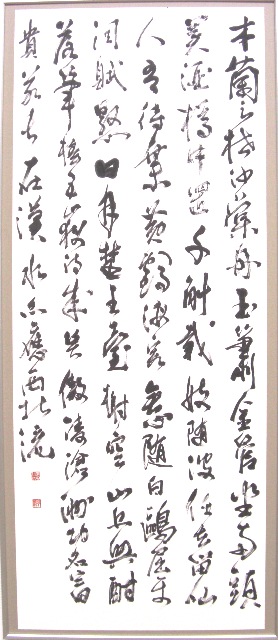 木蘭之枻沙棠舟玉簫金管坐兩頭
美酒樽中置千斛載妓隨波任去留仙
人有待乘黃鶴海客無心隨白鷗屈平
詞賦懸日月楚王臺榭空山丘興酣
落筆搖五嶽詩成笑傲凌滄洲功名富
貴若長在漢水亦應西北流